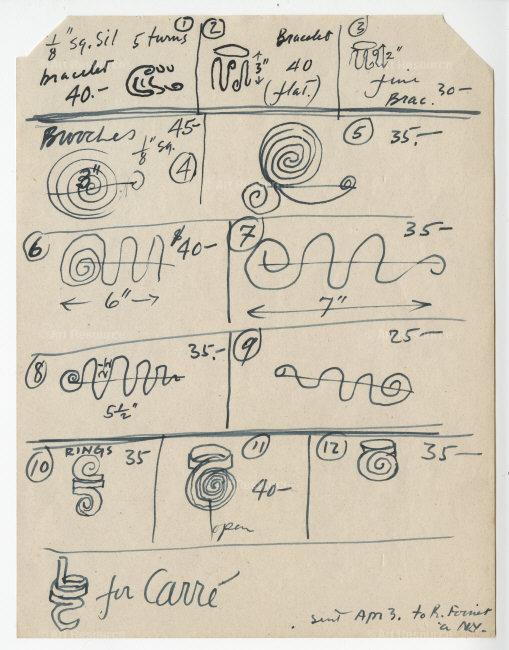 1/8" sq. Sil 5 turns ①
bracelet
40.-
②
Bracelet
3"
40
(flat.)
③
2"
fine
Brac. 30-
Brooches 45-
1/8" sq.
3"
④
⑤ 35.-
⑥ 40-
6"
⑦ 35-
7"
⑧ 35.-
5 1/2"
⑨ 25-
⑩ RINGS 35
⑪
40-
open
⑫ 35-
for Carré
. sent Apr 3. to R.
N.Y.